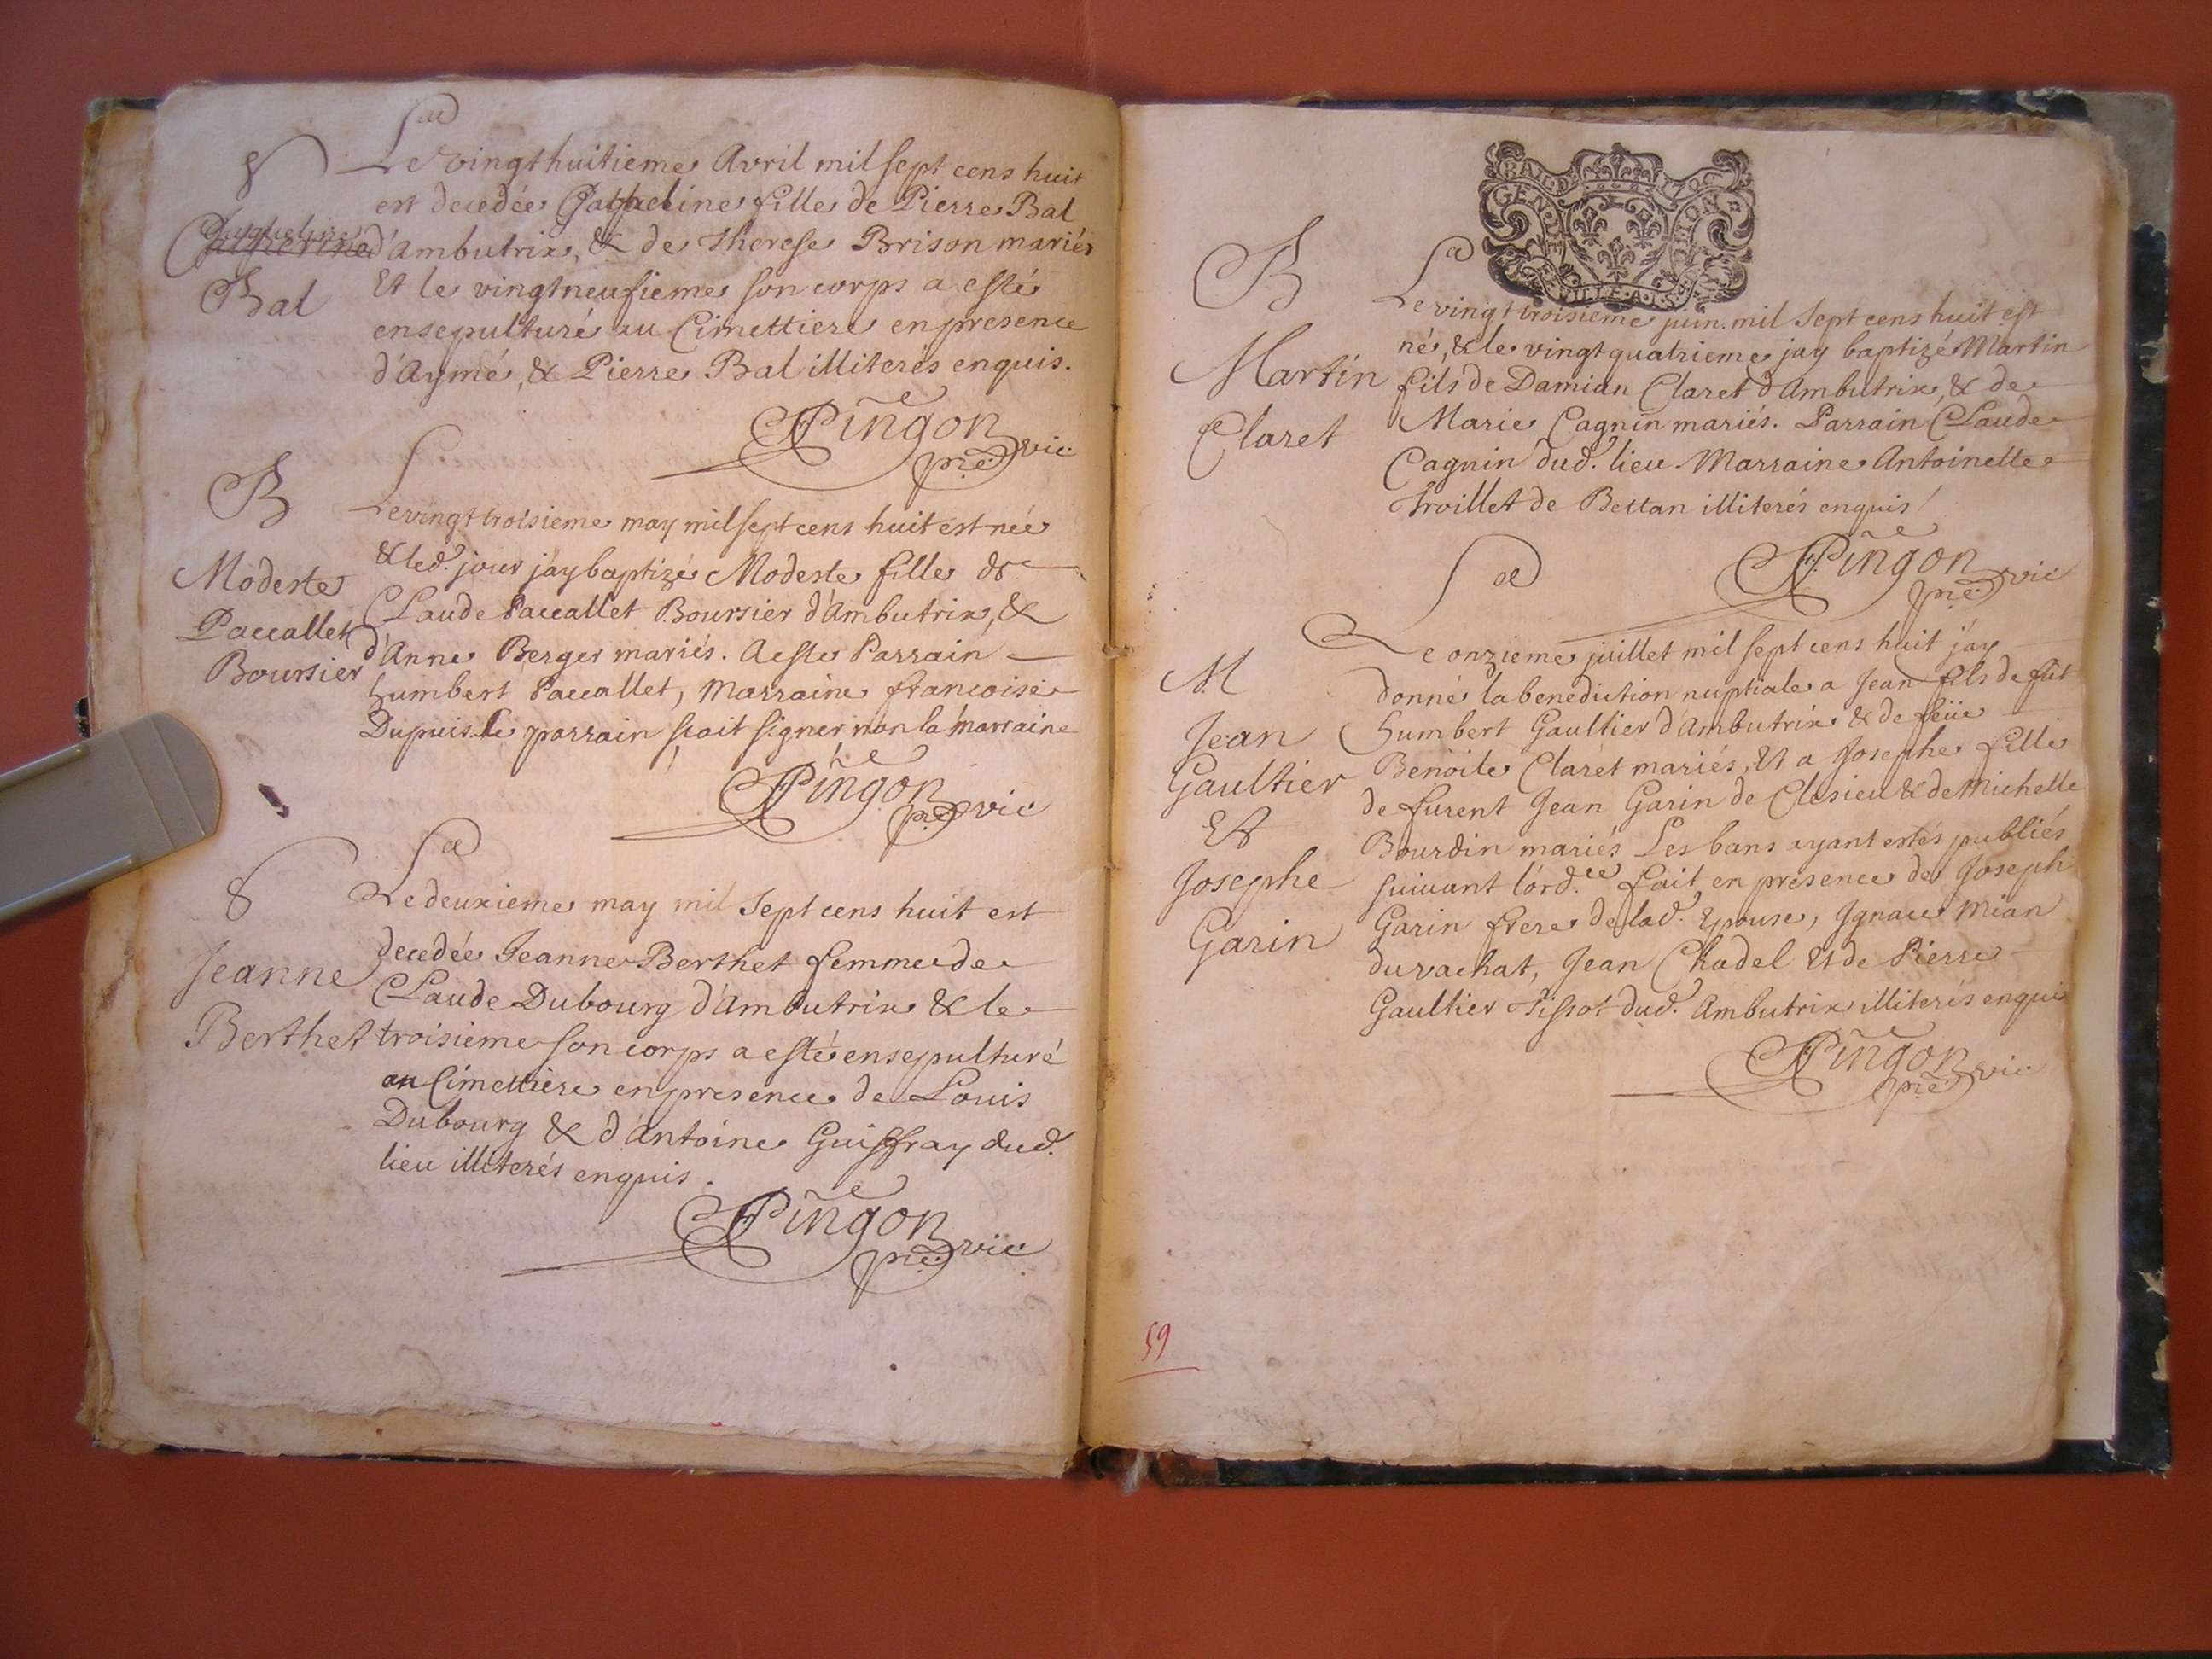 S
Jaqueline
Bal
Le vingthuitieme Avril mil sept cens huit
est decedée Jaqueline fille de Pierre Bal
d'Ambutrix, & de Therese Brison mariés
Et le vingtneufieme son corps a esté
ensepulturé au Cimettiere en presence
d'Aymé, & Pierre Bal illiterés enquis.
Pingon
pre. vic
B
Modeste
Paccallet
Boursier
Le vingt troisieme may mil sept cens huit est née
& led. jour jay baptizé Modeste fille de
Claude Paccallet Boursier d'Ambutrix, &
d'Anne Berger mariés. A esté Parrain
humbert Paccallet, Marraine francoise
Dupuis. le parrain sçait signer non la marraine
Pingon
pre. vic
S
Jeanne
Berthet
Le deuxieme may mil Sept cens huit est
decedée Jeanne Berthet femme de
Claude Dubourg d'Ambutrix & le
troisieme son corps a esté ensepulturé
au Cimettiere en presence de Louis
Dubourg & d'Antoine Guiffray dud.
lieu illiterés enquis.
Pingon
pre. vic
GEN. DE
B
Martin
Claret
Le vingt troisieme juin. mil Sept cens huit est
né, & le vingt quatrieme jay baptizé Martin
fils de Damian Claret d'Ambutrix, & de
Marie Cagnin mariés. Parrain Claude
Cagnin dud. lieu Marraine Antoinette
Troillet de Bettan illiterés enquis
Pingon
pre. vic
M
Jean
Gaultier
Et
Josephe
Garin
Le onzieme juillet mil sept cens huit j'ay
donné la benediction nuptiale a Jean fils de fut
humbert Gaultier d'Ambutrix & de feüe
Benoite Claret mariés, Et a Josephe fille
de furent Jean Garin de Clesieu & de Michelle
Bourdin mariés Les bans ayant estés publiés
suivant l'ord.ce fait en presence de Joseph
Garin frere de lad. Epouse, Ignace Mian
du vachat, Jean Chadel Et de Pierre
Gaultier Tissot dud. Ambutrix illiterés enquis
Pingon
pre. vic
59